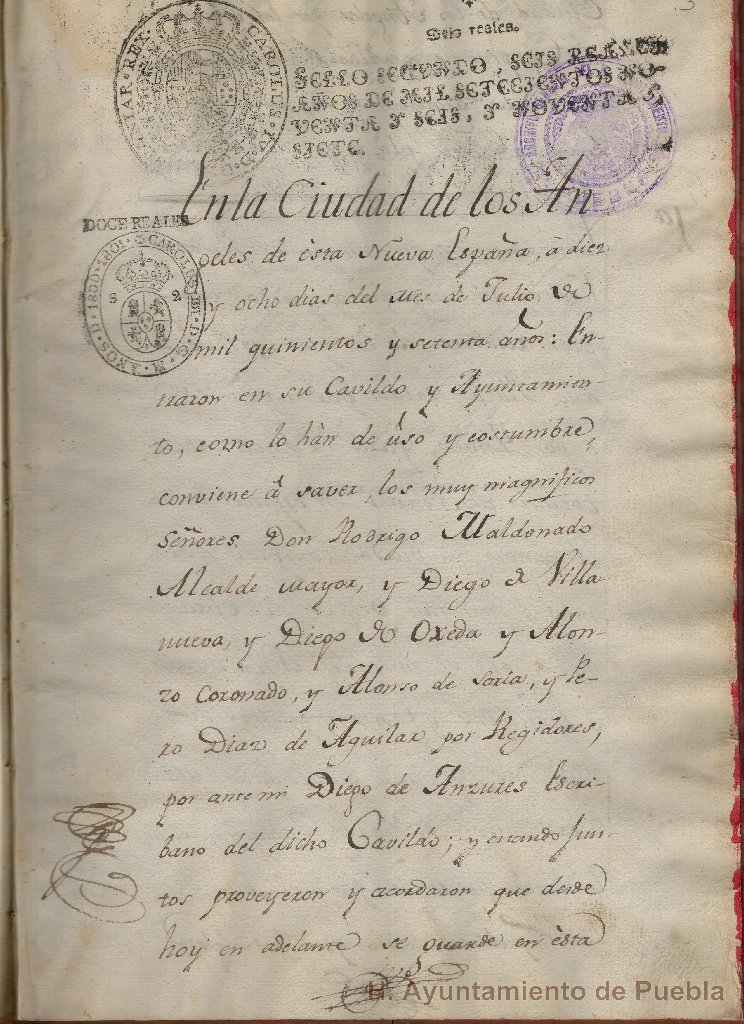 Seis reales.
SELLO SEGVNDO, SEIS REALES
AÑOS DE MIL SETECIENTOS NO-
VENTA Y SEIS, Y NOVENTA Y
SIETE.
CAROLUS IV D. G.
HISPANIAR. REX
En la Ciudad de los An
DOCE REALES
CAROLUS IIII D. G.
AÑOS D. 1800. 1801.
S. 2
geles de ésta Nueva España, á diez
y ocho dias del mes de Julio de
mil quinientos y setenta años: En-
traron en su Cavildo y Ayuntamien-
to, como lo hàn de úso y costumbre,
conviene á saver, los muy magnificos
Señores Don Rodrigo Maldonado
Alcalde mayor, y Diego de Villa
nueva, y Diego de Oxeda y Alon-
zo Coronado, y Alonso de Soria, y Pe-
ro Diaz de Aguilar por Regidores,
por ante mi Diego de Anzures Escri-
bano del dicho Cavildo; y estando jun-
tos proveyeron y acordaron que desde
hoy en adelante se guarde en ésta
H. Ayuntamiento de Puebla